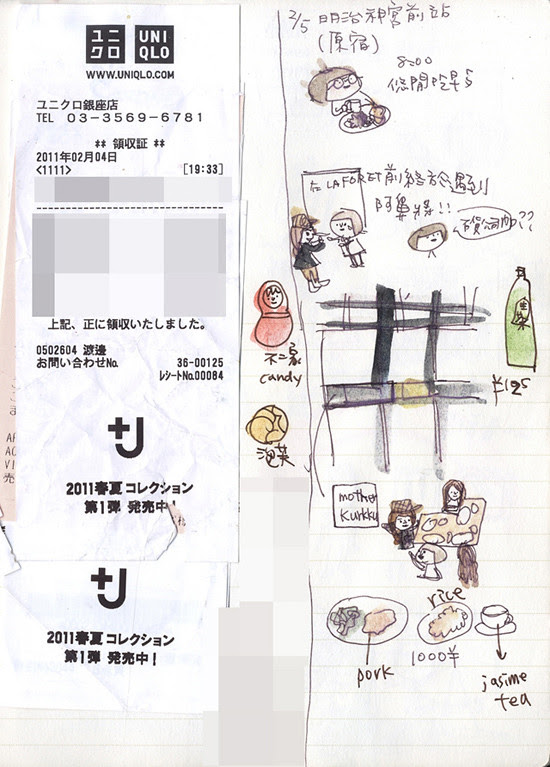 ユニクロ
UNIQLO
WWW.UNIQLO.COM
ユニクロ銀座店
TEL 03-3569-6781
** 領収証 **
2011年02月04日
<1111> [19:33]
上記、正に領収いたしました。
0502604 渡邊
お問い合わせNo. 36-00125
レシートNo.00084
+J
2011春夏コレクション
第1弾 発売中!
+J
2011春夏コレクション
第1弾 発売中!
2/5 明治神宮前站
(原宿)
8:00
悠閒吃早
在LAFORET前終於遇到
阿鼻將!!
不二家
candy
泡芙
生茶
¥125
mother
kurkku
rice
1000¥
pork
jasime
tea